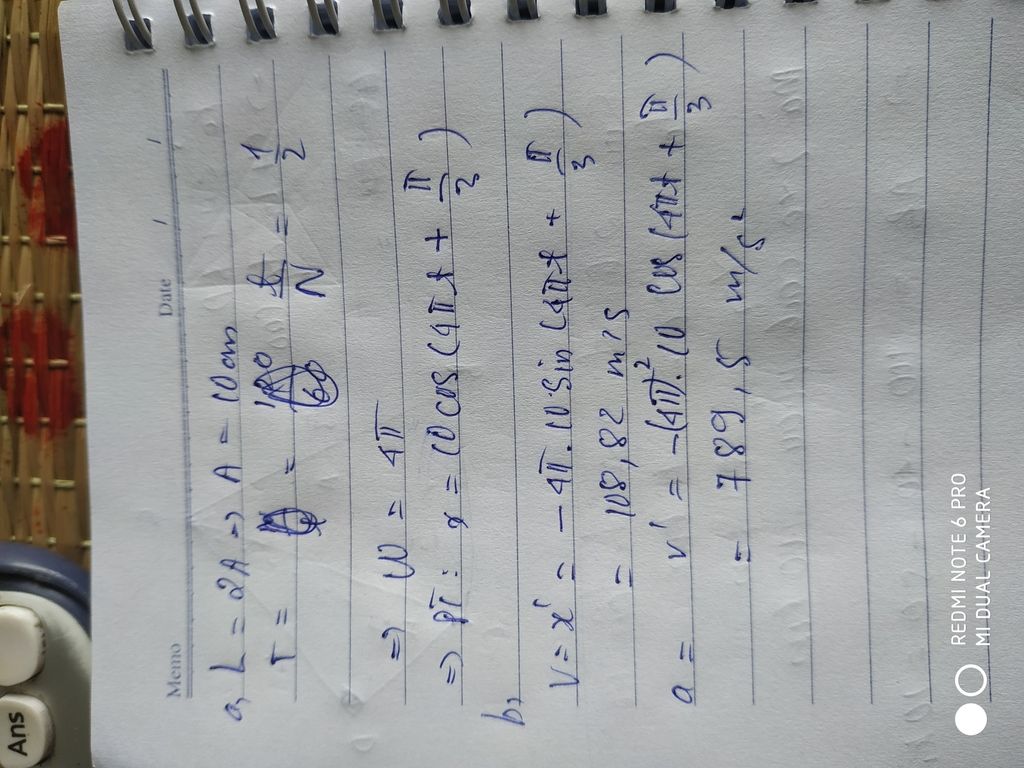 Memo Date / /
a, L = 2A => A = 10 cm
T = = = t/N = 1/2
=> ω = 4π
=> PT: x = 10 cos (4πt + π/3)
b,
v = x' = -4π.10 sin (4πt + π/3)
= 108,82 m/s
a = v' = -(4π)².10 cos (4πt + π/3)
= 789,5 m/s²
Ans
REDMI NOTE 6 PRO
MI DUAL CAMERA